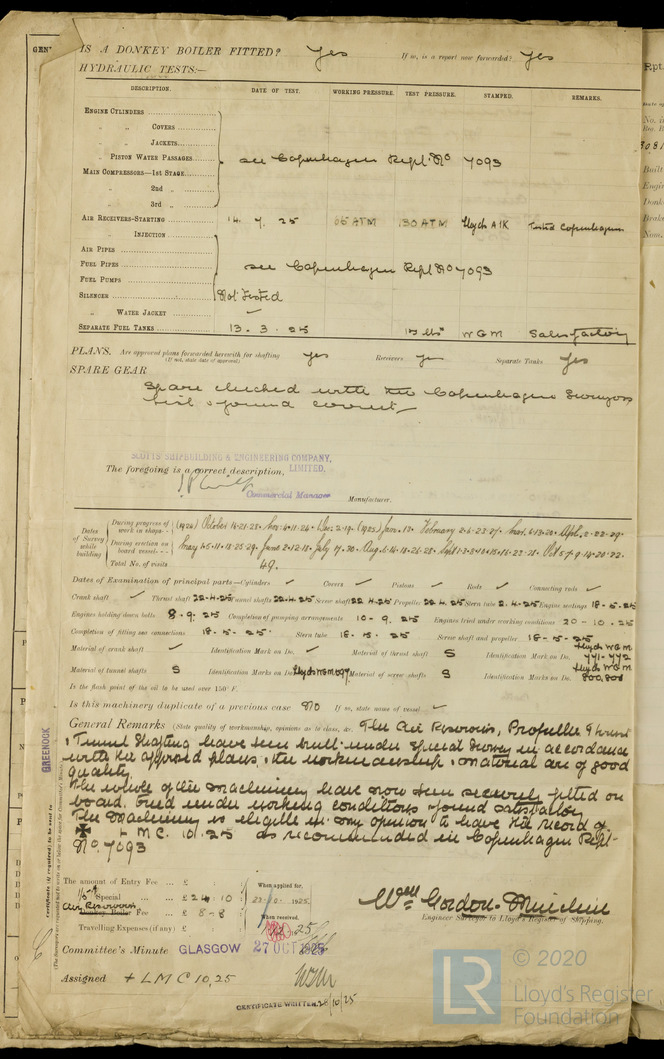 IS A DONKEY BOILER FITTED? Yes If so, is a report now forwarded? Yes
HYDRAULIC TESTS:—
DESCRIPTION. DATE OF TEST. WORKING PRESSURE. TEST PRESSURE. STAMPED. REMARKS.
ENGINE CYLINDERS
" " COVERS
" " JACKETS
" PISTON WATER PASSAGES see Copenhagen Rept. No 7093
MAIN COMPRESSORS—1st STAGE
" 2nd "
" 3rd "
AIR RECEIVERS—STARTING 14. 7. 25 65 ATM 130 ATM Lloyds AIK Tested Copenhagen
" INJECTION
AIR PIPES
FUEL PIPES see Copenhagen Rept No 7093
FUEL PUMPS
SILENCER Not Tested
" WATER JACKET ✓
SEPARATE FUEL TANKS 13. 3. 25 15 lbs WGM Satisfactory
PLANS. Are approved plans forwarded herewith for shafting yes Receivers yes Separate Tanks yes
(If not, state date of approval)
SPARE GEAR
Spare checked with the Copenhagen Surveyors
list & found correct
SCOTTS' SHIPBUILDING & ENGINEERING COMPANY,
The foregoing is a correct description, LIMITED.
Commercial Manager Manufacturer.
Dates of Survey while building
During progress of work in shops - - (1924) October 16.21.23. Nov. 4.11.26. Dec. 2.19. (1925) Jan. 13. February 2.6.23.27. Mar. 6.13.20. April 2.22.29.
During erection on board vessel - - - May 4.5.11.18.25.29. June 2.12.18. July 17.30. Aug. 18.26.28. Sept 1.3.8.10.15.16.22.28. Oct 5.7.9.14.20.22.
Total No. of visits 49.
Dates of Examination of principal parts—Cylinders ✓ Covers ✓ Pistons ✓ Rods ✓ Connecting rods ✓
Crank shaft ✓ Thrust shaft 22.4.25 Tunnel shafts 22.4.25 Screw shaft 22.4.25 Propeller 22.4.25 Stern tube 2.4.25 Engine seatings 18.5.25
Engines holding down bolts 8.9.25 Completion of pumping arrangements 10.9.25 Engines tried under working conditions 20-10-25
Completion of fitting sea connections 18.5.25 Stern tube 18.5.25 Screw shaft and propeller 18-5-25
Material of crank shaft ✓ Identification Mark on Do. ✓ Material of thrust shaft S Identification Mark on Do. Lloyds WGM 771-772
Material of tunnel shafts S Identification Marks on Do. Lloyds WGM Material of screw shafts S Identification Marks on Do. Lloyds WGM 800,801
Is the flash point of the oil to be used over 150° F.
Is this machinery duplicate of a previous case No If so, state name of vessel ✓
General Remarks (State quality of workmanship, opinions as to class, &c. The Air Reservoirs, Propeller Thrust
& Tunnel Shafting have been built under Special Survey in accordance
with the approved plans, the workmanship & material are of good
quality.
The whole of the machinery have now been securely fitted on
board, tried under working conditions & found satisfactory
The Machinery is eligible in my opinion to have the record of
✠ LMC. 10.25 as recommended in Copenhagen Rept.
No 7093
GREENOCK
The amount of Entry Fee ... £ : : When applied for,
Special ... ... £ 24 : 10 : 1925
Air Reservoirs
Donkey Boiler Fee ... £ 8 - 8 : When received,
Travelling Expenses (if any) £ : : 25
Engineer Surveyor to Lloyd's Register of Shipping.
Committee's Minute GLASGOW 27 OCT 1925
Assigned + LMC 10,25
CERTIFICATE WRITTEN 28/10/25
LR
© 2020
Lloyd's Register
Foundation